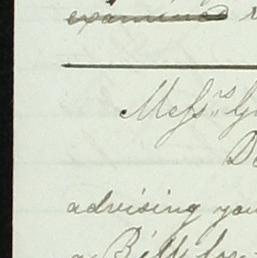 examined
Messrs
advising you
a Bill for